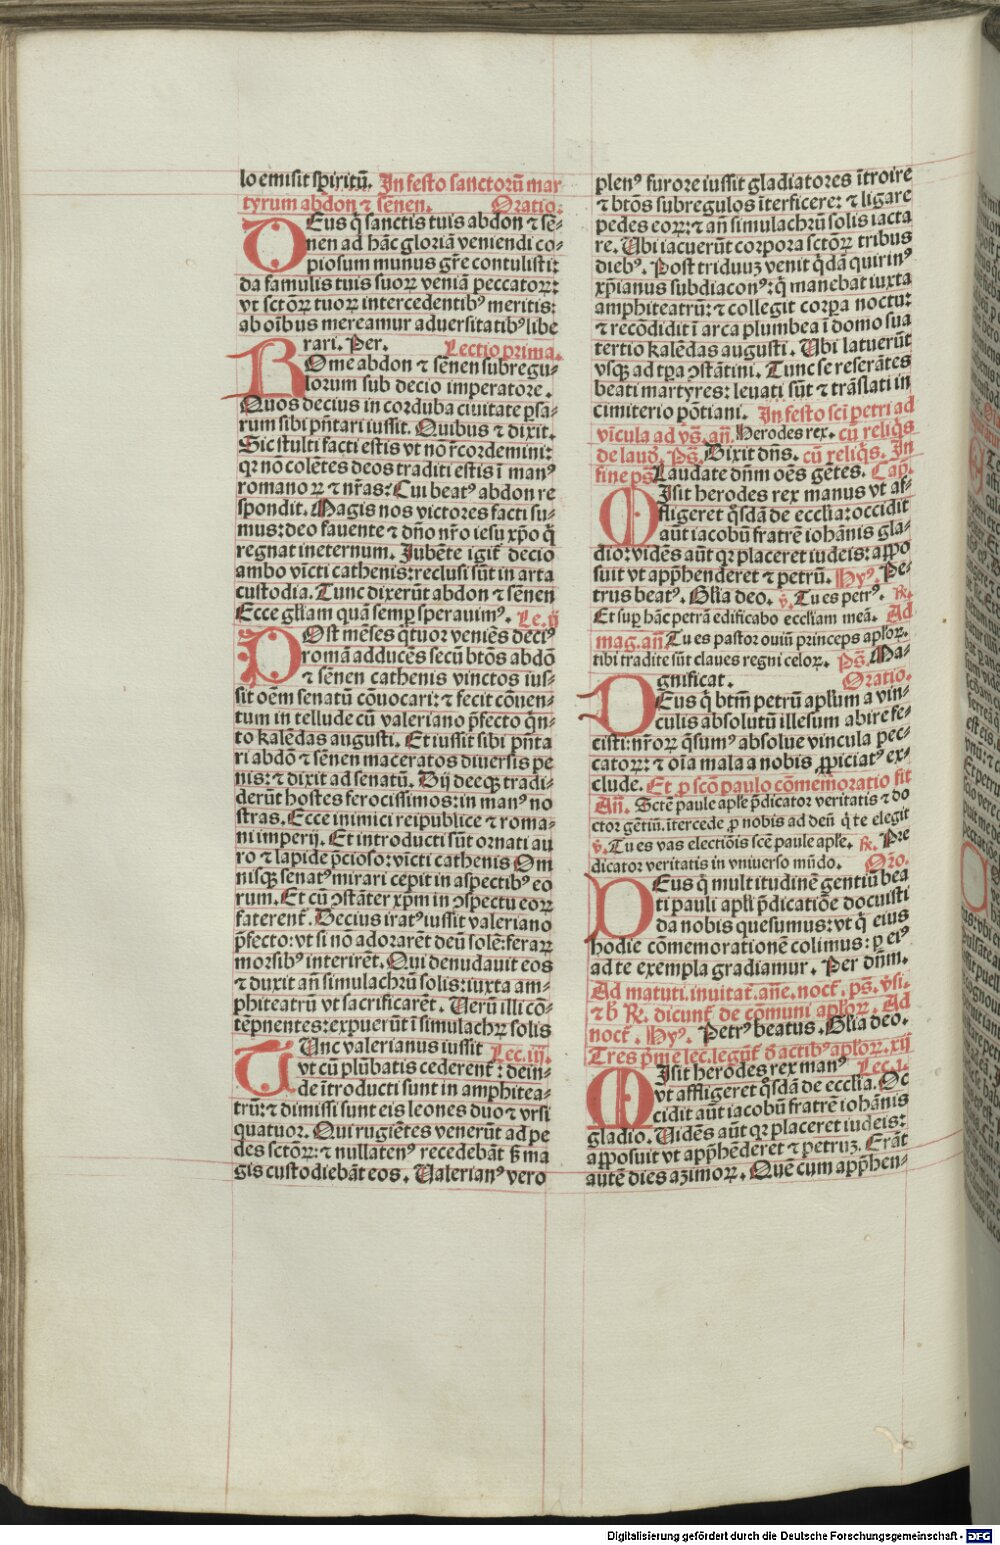 lo emisit spiritū. In festo sanctorū mar
tyrum abdon ⁊ sēnen. Oratio.
DEus q̄ sanctis tuis abdon ⁊ sē-
nen ad hāc gloriā veniendi co-
piosum munus gr̄e contulisti:
da famulis tuis suoꝝ veniā peccatoꝝ:
vt sctōꝝ tuoꝝ intercedentibꝰ meritis:
ab oībus mereamur aduersitatibꝰ libe
rari. Per. Lectio prima.
ROme abdon ⁊ sēnen subregu-
lorum sub decio imperatore.
Quos decius in corduba ciuitate ꝑsa-
rum sibi pn̄tari iussit. Quibus ⁊ dixit.
Sic stulti facti estis vt non r̄cordemini:
qꝛ no colētes deos traditi estis ī manꝰ
romanoꝝ ⁊ nr̄as: Cui beatꝰ abdon re
spondit. Magis nos victores facti su-
mus: deo fauente ⁊ dn̄o nr̄o iesu xp̄o q̄
regnat ineternum. Jubēte igit̄ decio
ambo vīcti cathenis: reclusi sūt in arta
custodia. Tunc dixerūt abdon ⁊ sēnen
Ecce gl̄iam quā semꝑ sperauimꝰ. Le. ij
POst mēses q̄tuor veniēs deciꝰ
romā adducēs secū btōs abdō
⁊ sēnen cathenis vinctos ius-
sit oēm senatū cōuocari: ⁊ fecit cōuen-
tum in tellude cū valeriano p̄fecto q̄n-
to kalēdas augusti. Et iussit sibi pn̄ta
ri abdō ⁊ sēnen maceratos diuersis pe
nis: ⁊ dixit ad senatū. Dij deeqꝫ tradi-
derūt hostes ferocissimos: in manꝰ no
stras. Ecce inimici reipublice ⁊ roma-
ni imperij. Et introducti sūt ornati au
ro ⁊ lapide p̄cioso: vīcti cathenis Om
nisqꝫ senatꝰ mirari cepit in aspectibꝰ eo
rum. Et cū ꝯstāter xp̄m in ꝯspectu eoꝝ
faterent̄. Decius iratꝰ iussit valeriano
p̄fecto: vt si nō adorarēt deū solē: feraꝝ
morsibꝰ interirēt. Qui denudauit eos
⁊ duxit an̄ simulachrū solis: iuxta am-
phiteatrū vt sacrificarēt. Verū illi cō-
tēpnentes: expuerūt ī simulachꝝ solis
TUnc valerianus iussit Lec. iij.
vt cū plūbatis cederent̄: dein-
de ītroducti sunt in amphitea-
trū: ⁊ dimissi sunt eis leones duo ⁊ vrsi
quatuor. Qui rugiētes venerūt ad pe
des sctōꝝ: ⁊ nullatenꝰ recedebāt s̄ ma
gis custodiebāt eos. Valerianꝰ vero
plenꝰ furore iussit gladiatores ītroire
⁊ btōs subregulos īterficere: ⁊ ligare
pedes eoꝝ: ⁊ an̄ simulachrū solis iacta
re. Vbi iacuerūt corpora sctōꝝ tribus
diebꝰ. Post triduuꝫ venit q̄dā quirinꝰ
xp̄ianus subdiaconꝰ: q̄ manebat iuxta
amphiteatrū: ⁊ collegit corꝑa noctu:
⁊ recōdidit ī arca plumbea ī domo sua
tertio kalēdas augusti. Vbi latuerūt
vsqꝫ ad tꝑa ꝯstātini. Tunc se reserātes
beati martyres: leuati sūt ⁊ trāslati in
cimiterio pōtiani. In festo sci̅ petri ad
vīcula ad vs̄. an̄. Herodes rex. cū reliq̄s
de laud̄. Ps̄. Dixit dn̄s. cū reliq̄s. In
fine ps̄. Laudate dn̄m oēs gētes. Cap̄.
MIsit herodes rex manus vt af-
fligeret q̄sdā de ecclīa: occidit
aūt iacobū fratrē iohānis gla-
dio: vidēs aūt qꝛ placeret iudeis: appo
suit vt app̄henderet ⁊ petrū. Hyꝰ. Pe-
trus beatꝰ. Gl̄ia deo. ꝟ. Tu es petrꝰ. ℟.
Et suꝑ hāc petrā edificabo eccl̄iam meā. Ad
mag. an̄. Tu es pastor ouiū princeps apl̄oꝝ.
tibi tradite sūt claues regni celoꝝ. Ps̄. Ma-
gnificat. Oratio.
DEus q̄ btm̄ petrū apl̄um a vin-
culis absolutū illesum abire fe-
cisti: nr̄oꝝ q̄sumꝰ absolue vincula pec-
catoꝝ: ⁊ oīa mala a nobis ꝓpiciatꝰ ex-
clude. Et ꝓ scō paulo cōmemoratio fit
An̄. Scte̅ paule apl̄e p̄dicator veritatis ⁊ do
ctor gētiū. ītercede ꝓ nobis ad deū q̄ te elegit
ꝟ. Tu es vas electiōis scē paule apl̄e. ℟. Pre
dicator veritatis in vniuerso mūdo. Orō.
DEus q̄ multitudinē gentiū bea
ti pauli apl̄i p̄dicatiōe docuisti
da nobis quesumus: vt q̄ eius
hodie cōmemorationē colimus: ꝑ eiꝰ
ad te exempla gradiamur. Per dn̄m.
Ad matuti. inuitat̄. an̄e. noct̄. ps̄. v̄si.
⁊ b̄ ℟. dicunt̄ de cōmuni apl̄oꝝ. Ad
noct̄. Hyꝰ. Petrꝰ beatus. Gl̄ia deo.
Tres p̄me lec. legunt̄ d̄ actibꝰ apl̄oꝝ. xij
MIsit herodes rex manꝰ Lec. i.
vt affligeret q̄sdā de eccl̄ia. Oc
cidit aūt iacobū fratrē iohānis
gladio. Vidēs aūt qꝛ placeret iudeis:
apposuit vt app̄henderet ⁊ petruꝫ. Erāt
autē dies azimoꝝ. Quē cum app̄hen-
Digitalisierung gefördert durch die Deutsche Forschungsgemeinschaft - DFG